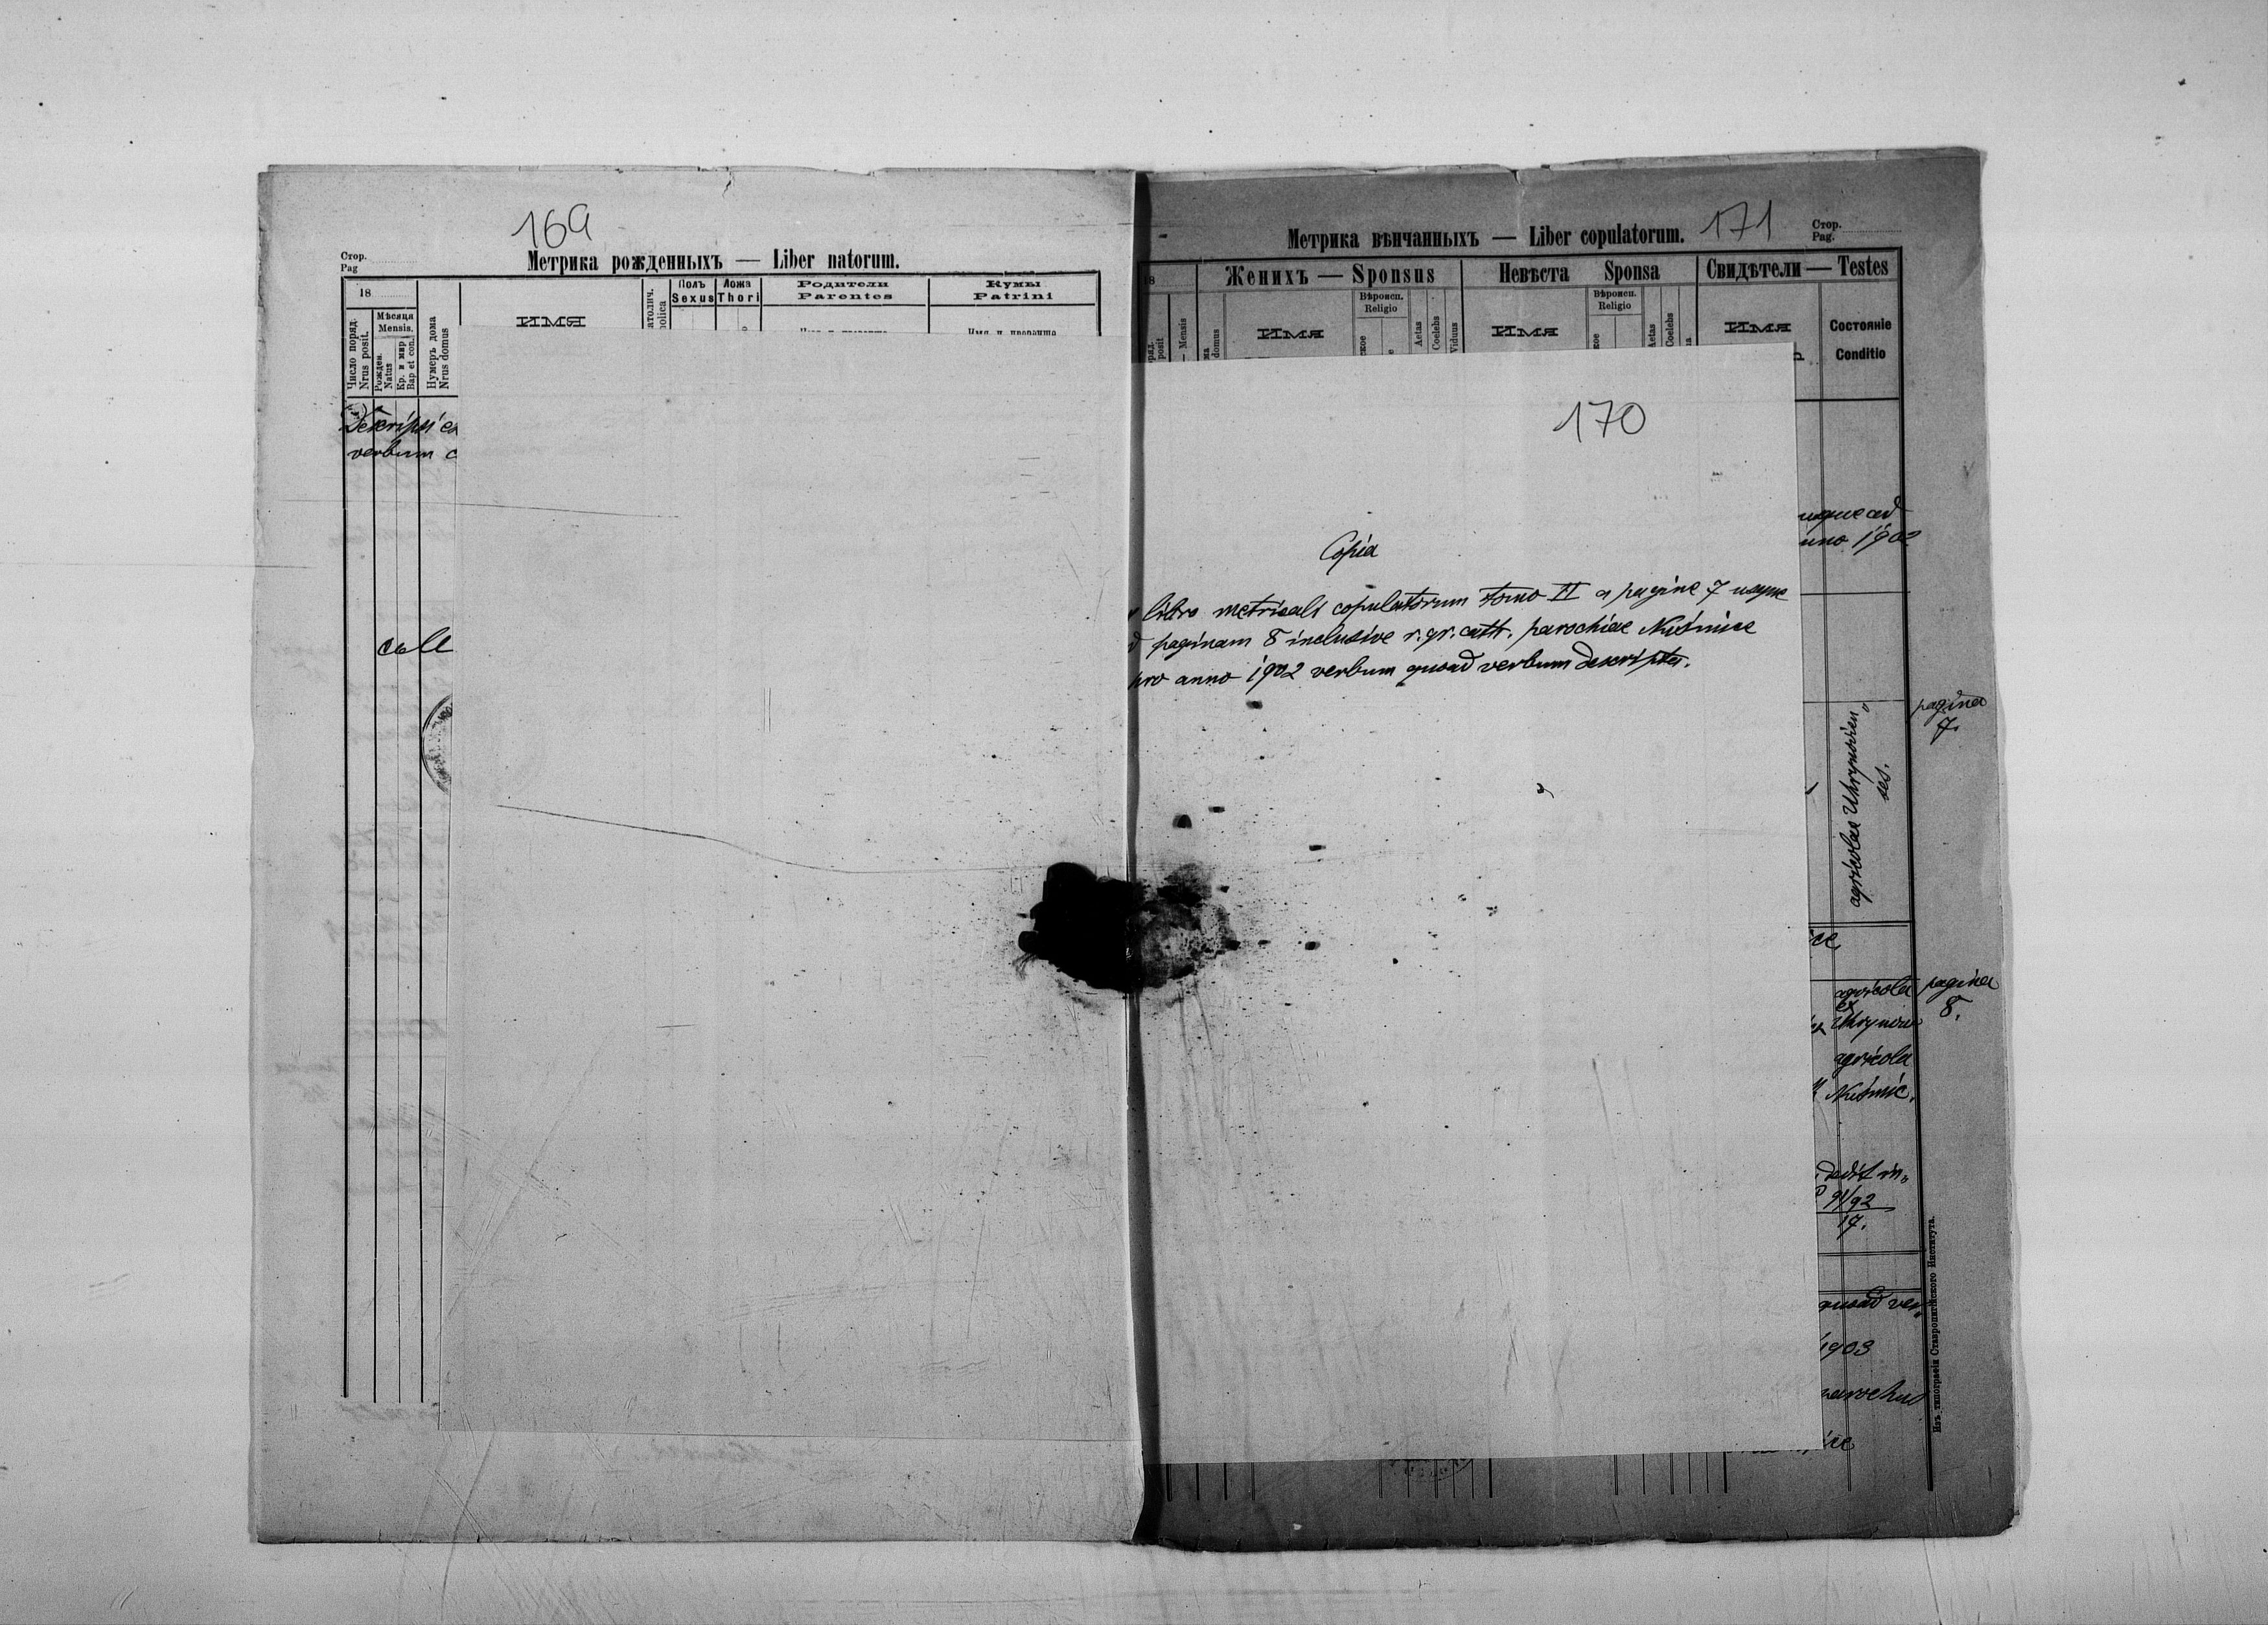 169
Стор.
Pag
Метрика рожденныхъ — Liber natorum.
18
Число поряд.
Nrus posit.
Мѣсяця
Mensis.
Рожден.
Natus
Кр. и мир
Bap et con.
Нумеръ дома
Nrus domus
ИМЯ
Полъ
Sexus
Ложа
Thori
Родители
Parentes
Кумы
Patrini
Descripsi
verbum
Метрика вѣнчанныхъ — Liber copulatorum.
171
Стор.
Pag.
Женихъ — Sponsus
Невѣста Sponsa
Свидѣтели — Testes
Mensis
domus
Имя
Вѣроисп.
Religio
Aetas
Coelebs
Viduus
Имя
Вѣроисп.
Religio
Aetas
Coelebs
Имя
Состояніе
Conditio
170
Copia
libro metricali copulatorum tomo II a pagine 7 usque
paginam 8 inclusive r. gr. cath. parochiae Nuśmice
pro anno 1902 verbum quoad verbum descripta.
usque ad
1902
agricolae Uhrynovien„
ses.
pagina
7.
agricola
ex
Uhrynow
pagina
8.
agricola
Nuśmic.
dedit in„
91/92
17.
quoad ver„
1903
parochus
Изъ типографіи Ставропигійского Института.